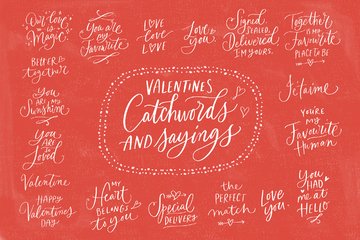 Our love is Magic
You are my Favourite
LOVE
LOVE
LOVE
Love is You.
Signed
SEALED,
Delivered
I'M YOURS.
Together
IS MY
Favourite
PLACE to BE
BETTER
together
VALENTINES
Catchwords
AND sayings
Je t'aime
YOU
ARE MY
Sunshine
YOU'RE
MY
Favourite
Human
YOU
ARE
So
Loved
Valentine
HAPPY
Valentines
DAY
MY
Heart
BELONGS
to you
Special
DELIVERY
the
PERFECT
match
Love
you.
YOU
HAD
me at
HELLO